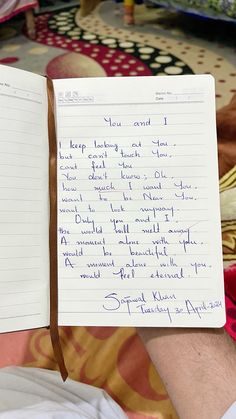 You and I
I keep looking at You,
but can't touch You,
can't feel You
You don't know; Oh,
how much I want You,
want to be Near You,
want to look anyway.
Only you and I,
the world will melt away
A moment alone with you,
would be beautiful
A minute alone with you,
would feel eternal!
Sajawal Khan
Tuesday 30 April-2024